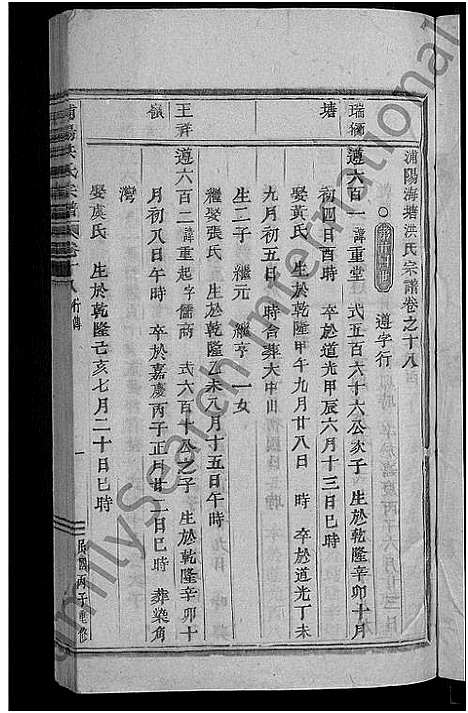 浦陽海塘洪氏宗譜卷之十八
遵字行
瑞獅塘
遵六百一 諱重堂 式五百六十六公次子 生於乾隆辛卯十月
初四日酉時 卒於道光甲辰六月十三日巳時
娶黃氏 生於乾隆甲午九月廿八日 時 卒於道光丁未
九月初五日 時合葬大中山
生二子 繼元 繼亨 一女
繼娶張氏 生於乾隆乙未八月十五日午時
王祥嶺
遵六百二 諱重起字儒商 式六百十公之子 生於乾隆辛卯十
月初八日午時 卒於嘉慶丙子正月廿二日巳時 葬染角
灣
娶虞氏 生於乾隆己亥七月二十日巳時
浦陽洪氏宗譜 卷十八 行傳
一
民國丙子重修
FamilySearch International